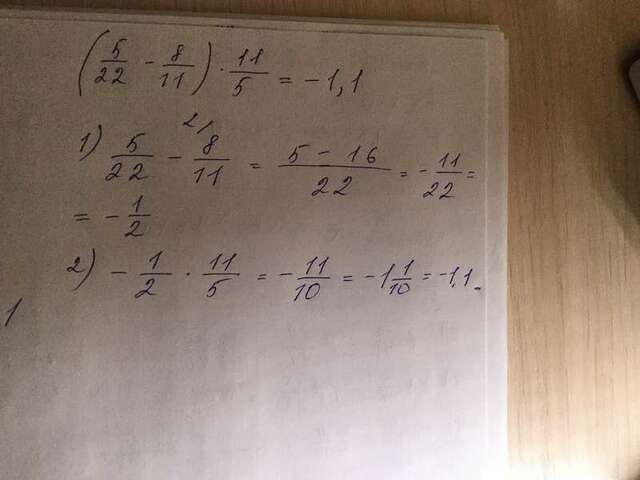 (5/22 - 8/11) · 11/5 = -1,1
1) 5/22 - 8/11 = (5 - 16)/22 = -11/22 =
= -1/2
2) -1/2 · 11/5 = -11/10 = -1 1/10 = -1,1.